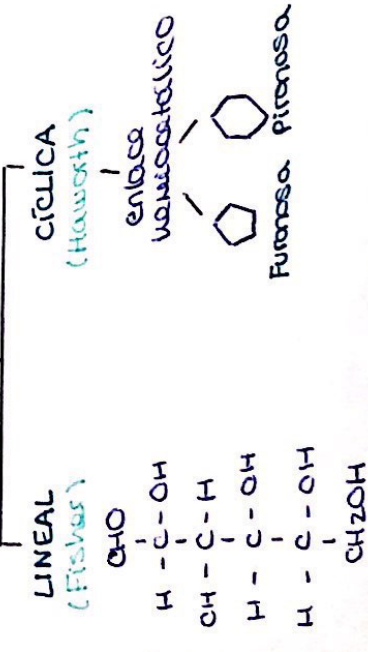 LINEAL
(Fisher)
CHO
H - C - OH
CH - C - H
H - C - OH
H - C - OH
CH2OH
CÍCLICA
(Haworth)
enlace
hemiacetálico
Furanosa Piranosa